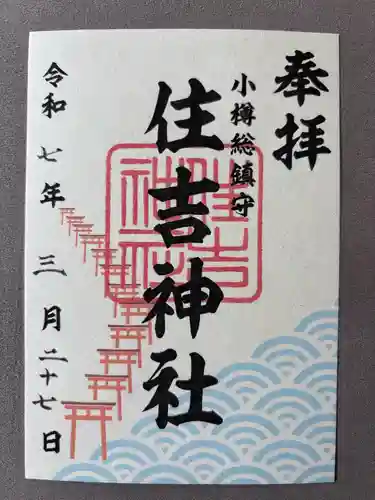 奉拝
小樽総鎮守
住吉神社
令和七年三月二十七日
住吉
神社